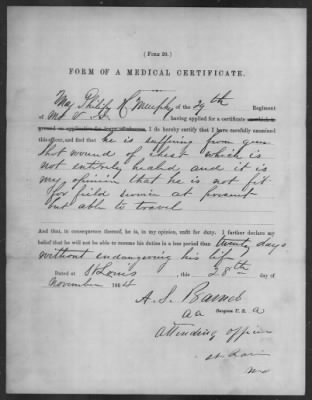 ( FORM 20. )
FORM OF A MEDICAL CERTIFICATE.
Maj Philip H Murphy of the 29th Regiment
of Mo V. I. having applied for a certificate on which to
ground an application for leave of absence, I do hereby certify that I have carefully examined
this officer, and find that he is suffering from gun
shot wound of chest which is
not entirely healed and it is
my opinion that he is not fit
for field service at present
but able to travel
And that, in consequence thereof, he is, in my opinion, unfit for duty. I further declare my
belief that he will not be able to resume his duties in a less period than twenty days
without endangering his life
Dated at St Louis , this 28th day of
November 1864
A. S. Barnes
aa Surgeon U. S. A
Attending officer
St. Louis
Mo